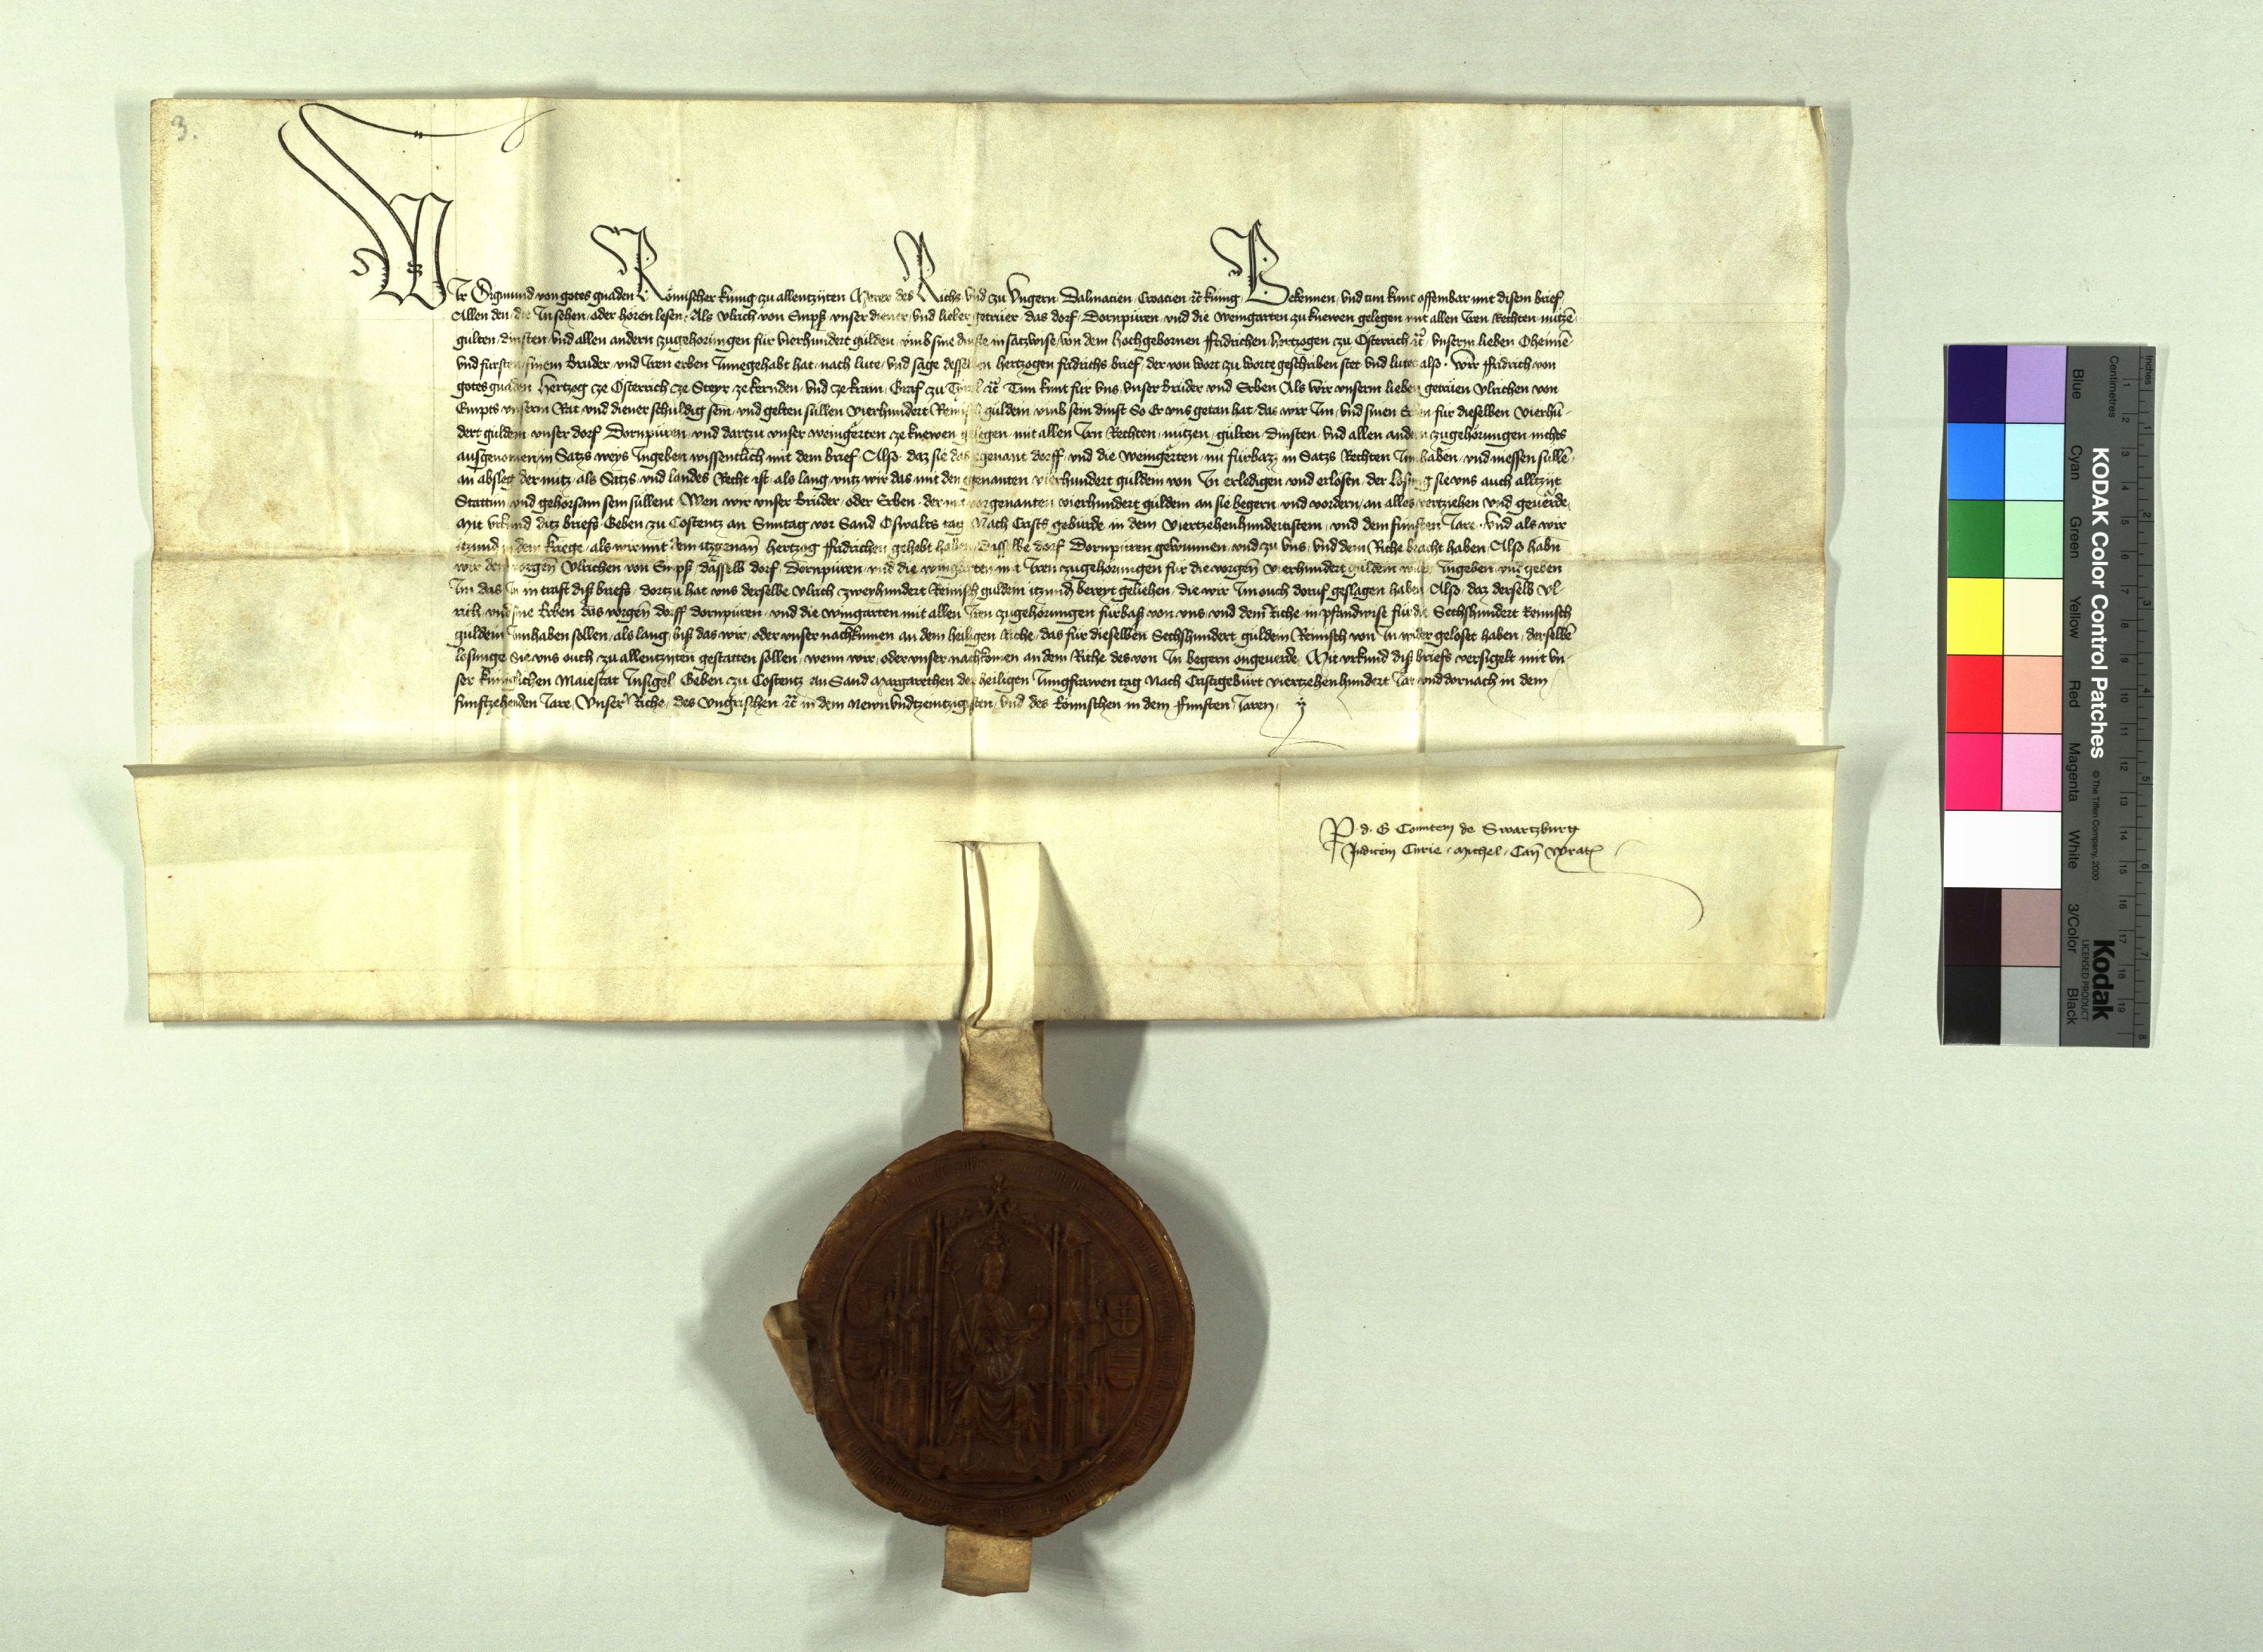 3.
Wir Sigmund von gotes gnaden Römischer kunig zu allentzijten Merer des Richs vnd zu Vngern Dalmatien Croatien ꝛc̃ kunig Bekennen vnd tun kunt offembar mit disem brief
Allen den die In sehen oder horen lesen, Als Vlrich von Empß vnser diener vnd lieber getrüer das dorf Dornpüren vnd die weingarten zu knewen gelegen mit allen Iren Rechten nützẽ
gulten dinsten vnd allen andern zugehorungen für vierhundert gulden vmb sine dinste in satzwise von dem hochgebornen ffridrichen hertzogen zu Osterrich ꝛc̃ vnserm lieben Oheimẽ
vnd fürsten sinem bruder vnd Iren erben Innegehabt hat nach lute vnd sage desselben hertzogen fridrichs brief der von wort zu worte geschriben stet vnd lutet also. Wir ffridrich von
gotes gnaden Hertzog ze Osterrich ze Steyr ze kernden vnd ze krain Graf zu Tyrol ꝛc̃ Tun kunt für vns vnser brüder vnd Erben Als wir vnserm lieben getrüen Vlrichen von
Empts vnserm Rat vnd diener schuldig sein vnd gelten sullen vierhundert Reinisch guldein vmb sein dinst So Er vns getan hat das wir Im vnd sinen Erben für dieselben vierhũ-
dert guldein vnser dorf Dornpüren vnd dartzu vnser weingarten ze knewen gelegen mit allen Irn Rechten nützen gülten dinsten vnd allen andern zugehörungen nichts
ausgenomen in Satzs weys Ingeben wissentlich mit dem brief Also daz sie das egenant dorff vnd die weingerten nu fürbazz in Satzs Rechten Innhaben vnd niessen sullẽ
an abslag der nütz als Satzs vnd landes Recht ist als lang vntz wir das mit den egenanten vierhundert guldein von In erledigen vnd erlösen der Losung sie vns auch alltzijt
Stattun vnd gehorsam sein sullent Wen wir vnser brüder oder Erben der mit vorgenanten vierhundert guldein an sie begern vnd vordern an alles vertziehen vnd geuerde
Mit vrkund ditz briefs Geben zu Costentz an Sunntag vor Sand Oswalts tag Nach Crists geburde in dem viertzehenhundertistem vnd dem fünften Jare. Vnd als wir
itzund in dem kriege als wir mit dem itzgenañ hertzog ffridrichen gehabt haben dasselbe dorf Dornpüren gewunnen vnd zu vns vnd dem Riche bracht haben Also habñ
wir dem vorgeñ Vlrichen von Empß dasselb dorf Dornpüren vnd die wingarten mit Iren zugehorungen für die vorgeñ vierhundert guldein wider Ingeben vnd geben
Im das In in craft diß briefs dortzu hat vns derselbe Vlrich zweyhundert Reinisch guldein itzund bereyt geliehen die wir Im ouch doruf geslagen haben Also daz derselb Vl-
rich vnd sine Erben das vorgeñ dorff dornpüren vnd die wingarten mit allen Iren zugehörungen fürbaß von vns vnd dem Riche in pfandwise für die Sechshundert Reinisch
guldein Innhaben sollen als lang biß das wir oder vnser nachkumen an dem heiligen Riche das für dieselben Sechshundert guldein Reinisch von In wider geloset haben derselbẽ
losunge Sie vns ouch zu allentzijten gestatten sollen wenn wir oder vnser nachkomen an dem Riche des von In begern ongeuerde Mit vrkund diß briefs versigelt mit vn-
ser kuniglichen Maiestat Insigel Geben zu Costentz an Sand Margarethen der heiligen Jungfrawen tag Nach Cristi geburt viertzehenhundert Jar vnd dornach in dem
funftzehenden Jare Vnser Riche des Vngrischen ꝛc̃ in dem Newnvndtzweintzigisten vnd des Römischen in dem fünften Jaren
P. d. G Comitem de Swartzburg
Judicem Curie Michel Cañ Wrat
KODAK Color Control Patches
© The Tiffen Company, 2000
Kodak
LICENSED PRODUCT
Inches
Centimetres
Blue
Cyan
Green
Yellow
Red
Magenta
White
3/Color
Black